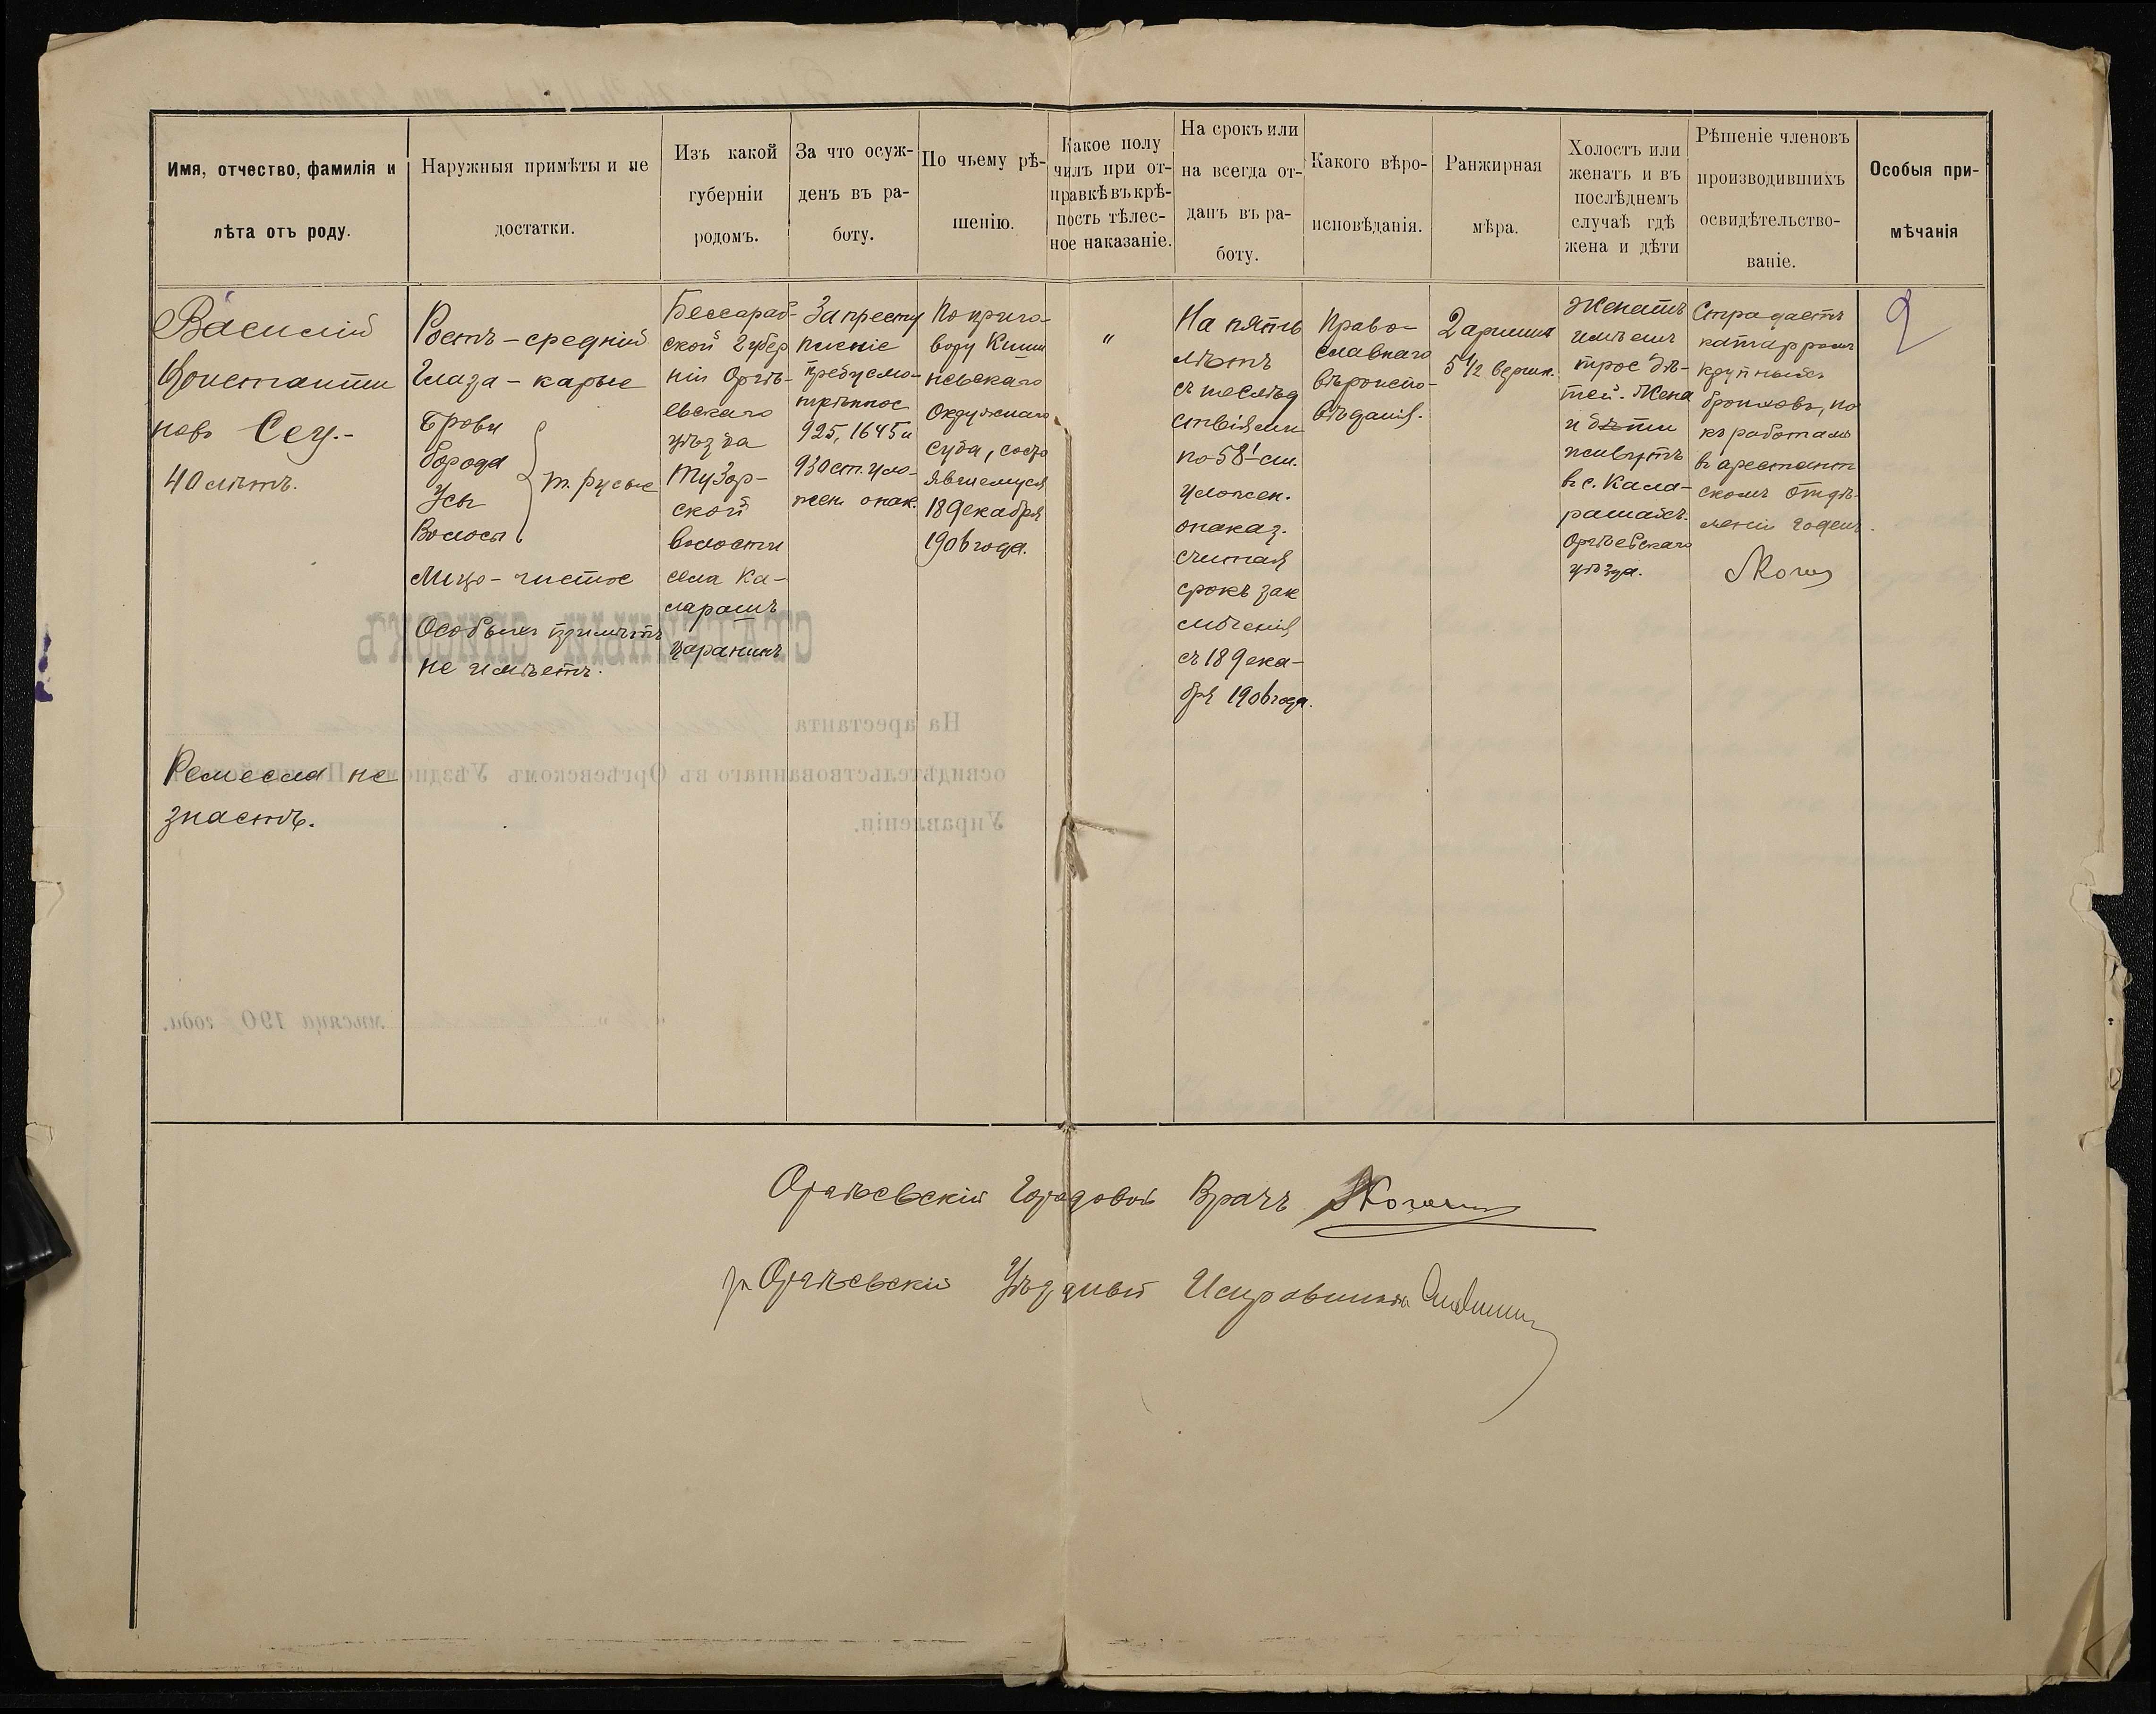 Имя, отчество, фамилія и
лѣта отъ роду.
Наружныя примѣты и не
достатки.
Изъ какой
губерніи
родомъ.
За что осуж-
денъ въ ра-
боту.
По чьему рѣ-
шенію.
Какое полу
чилъ при от-
правкѣ въ крѣ-
пость тѣлес-
ное наказаніе.
На срокъ или
на всегда от-
данъ въ ра-
боту.
Какого вѣро-
исповѣданія.
Ранжирная
мѣра.
Холостъ или
женатъ и въ
послѣднемъ
случаѣ гдѣ
жена и дѣти
Рѣшеніе членовъ
производившихъ
освидѣтельство-
ваніе.
Особыя при-
мѣчанія
Василій
Константи
новъ Сеу.-
40 лѣтъ.
Ремесла не
знаетъ.
Ростъ - средній
Глаза - карые
Брови
борода
Усы
Волосы
т. русые
Лицо - чистое
Особыхъ примѣтъ
не имѣетъ.
Бессараб-
ской Губер
ніи Оргѣ-
евскаго
уѣзда
Тузор-
ской
волости
села Ка-
ларашъ
царанинъ
За престу
пленіе
предусмо-
трѣнное
925, 1645 и
930 ст. уло-
жен. о нак.
По приго-
вору Киши
невскаго
Окружнаго
суда, состо
явшемуся
18 декабря
1906 года.
"
На пять
лѣтъ
съ послѣд
ствіями
по 58¹ ст.
уложен.
о наказ.
считая
срокъ зак
люченія
съ 18 дека-
бря 1906 года.
Право-
славнаго
вѣроиспо-
вѣданія.
2 аршина
5 1/2 вершк.
Женатъ
имѣетъ
трое дѣ-
тей. Жена
и дѣти
живутъ
въ с. Кала-
рашахъ
Оргѣевскаго
уѣзда.
Страдаетъ
катарромъ
крупныхъ
бронховъ, но
къ работамъ
въ арестант
скомъ отдѣ-
леніи годенъ.
2
Оргѣевскій Городовой Врачъ
Оргѣевскій Уѣздный Исправникъ